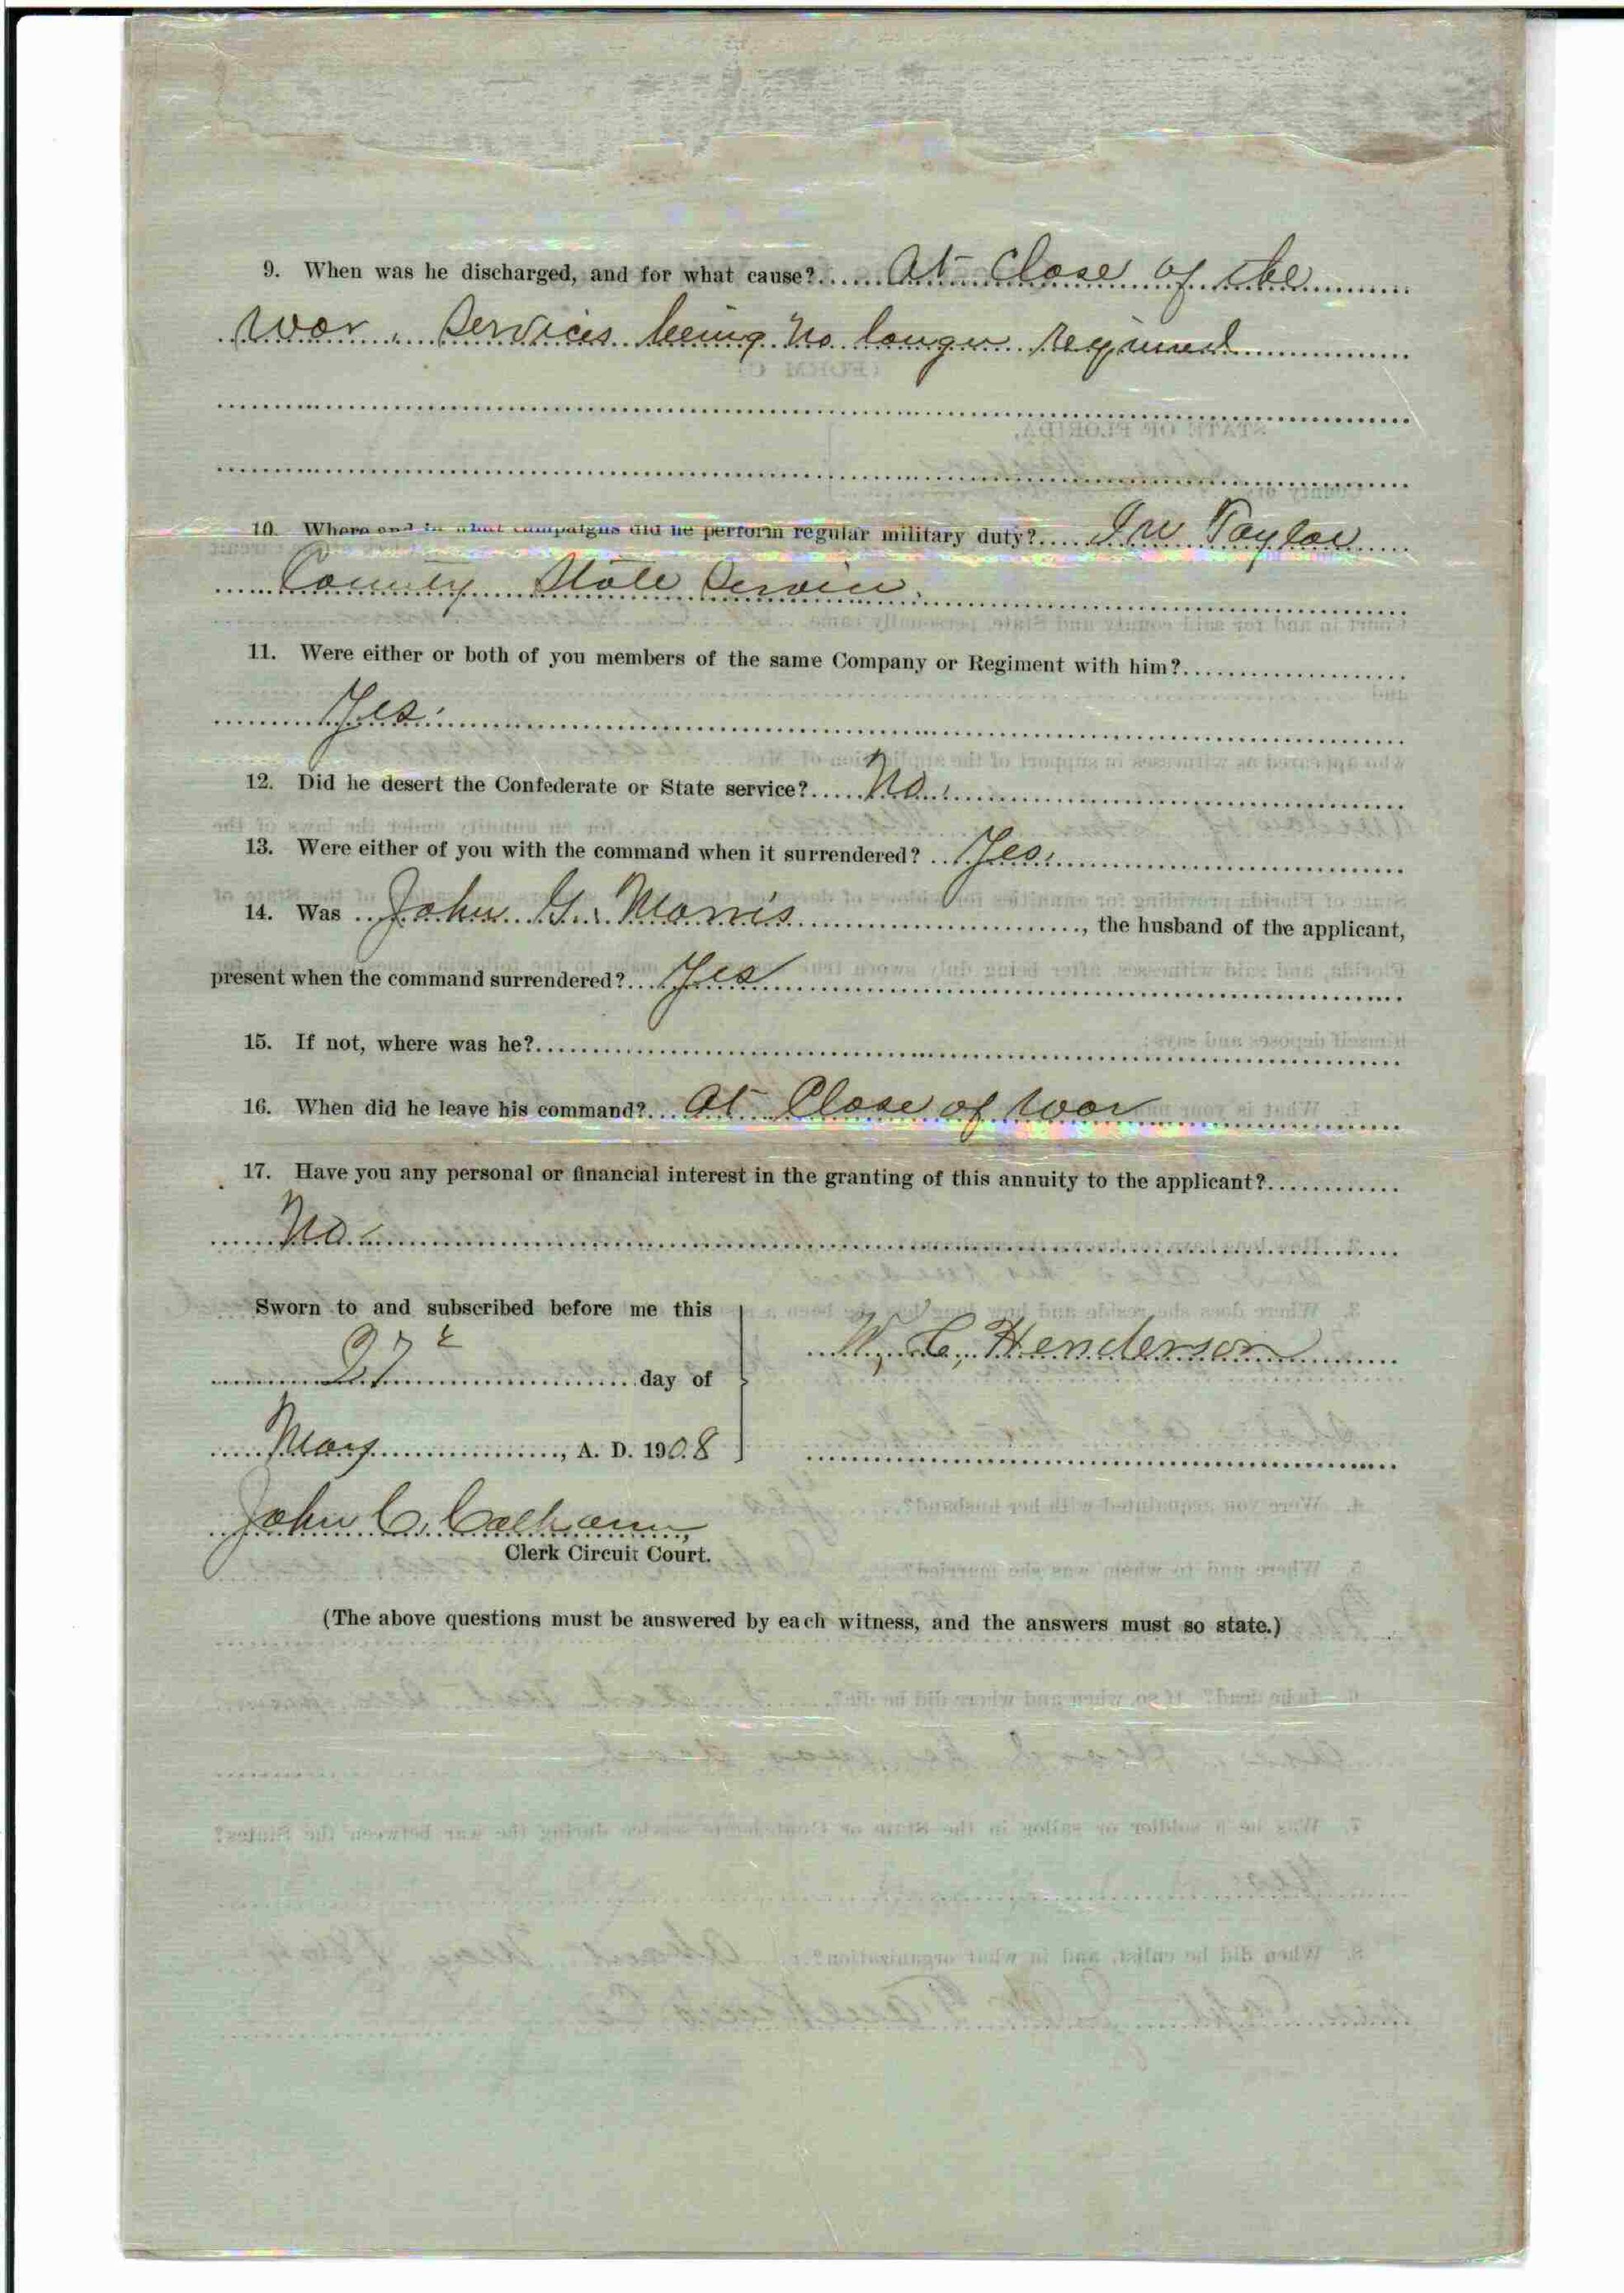 9. When was he discharged, and for what cause? At Close of the
War. Services being no longer required
10. Where and in what campaigns did he perform regular military duty? In Taylor
County State Service.
11. Were either or both of you members of the same Company or Regiment with him?
Yes.
12. Did he desert the Confederate or State service? No.
13. Were either of you with the command when it surrendered? Yes.
14. Was John G. Morris, the husband of the applicant,
present when the command surrendered? Yes
15. If not, where was he?
16. When did he leave his command? At Close of War
17. Have you any personal or financial interest in the granting of this annuity to the applicant?
No
Sworn to and subscribed before me this
27 day of
May, A. D. 1908
W. C. Henderson
John C. Calhoun,
Clerk Circuit Court.
(The above questions must be answered by each witness, and the answers must so state.)